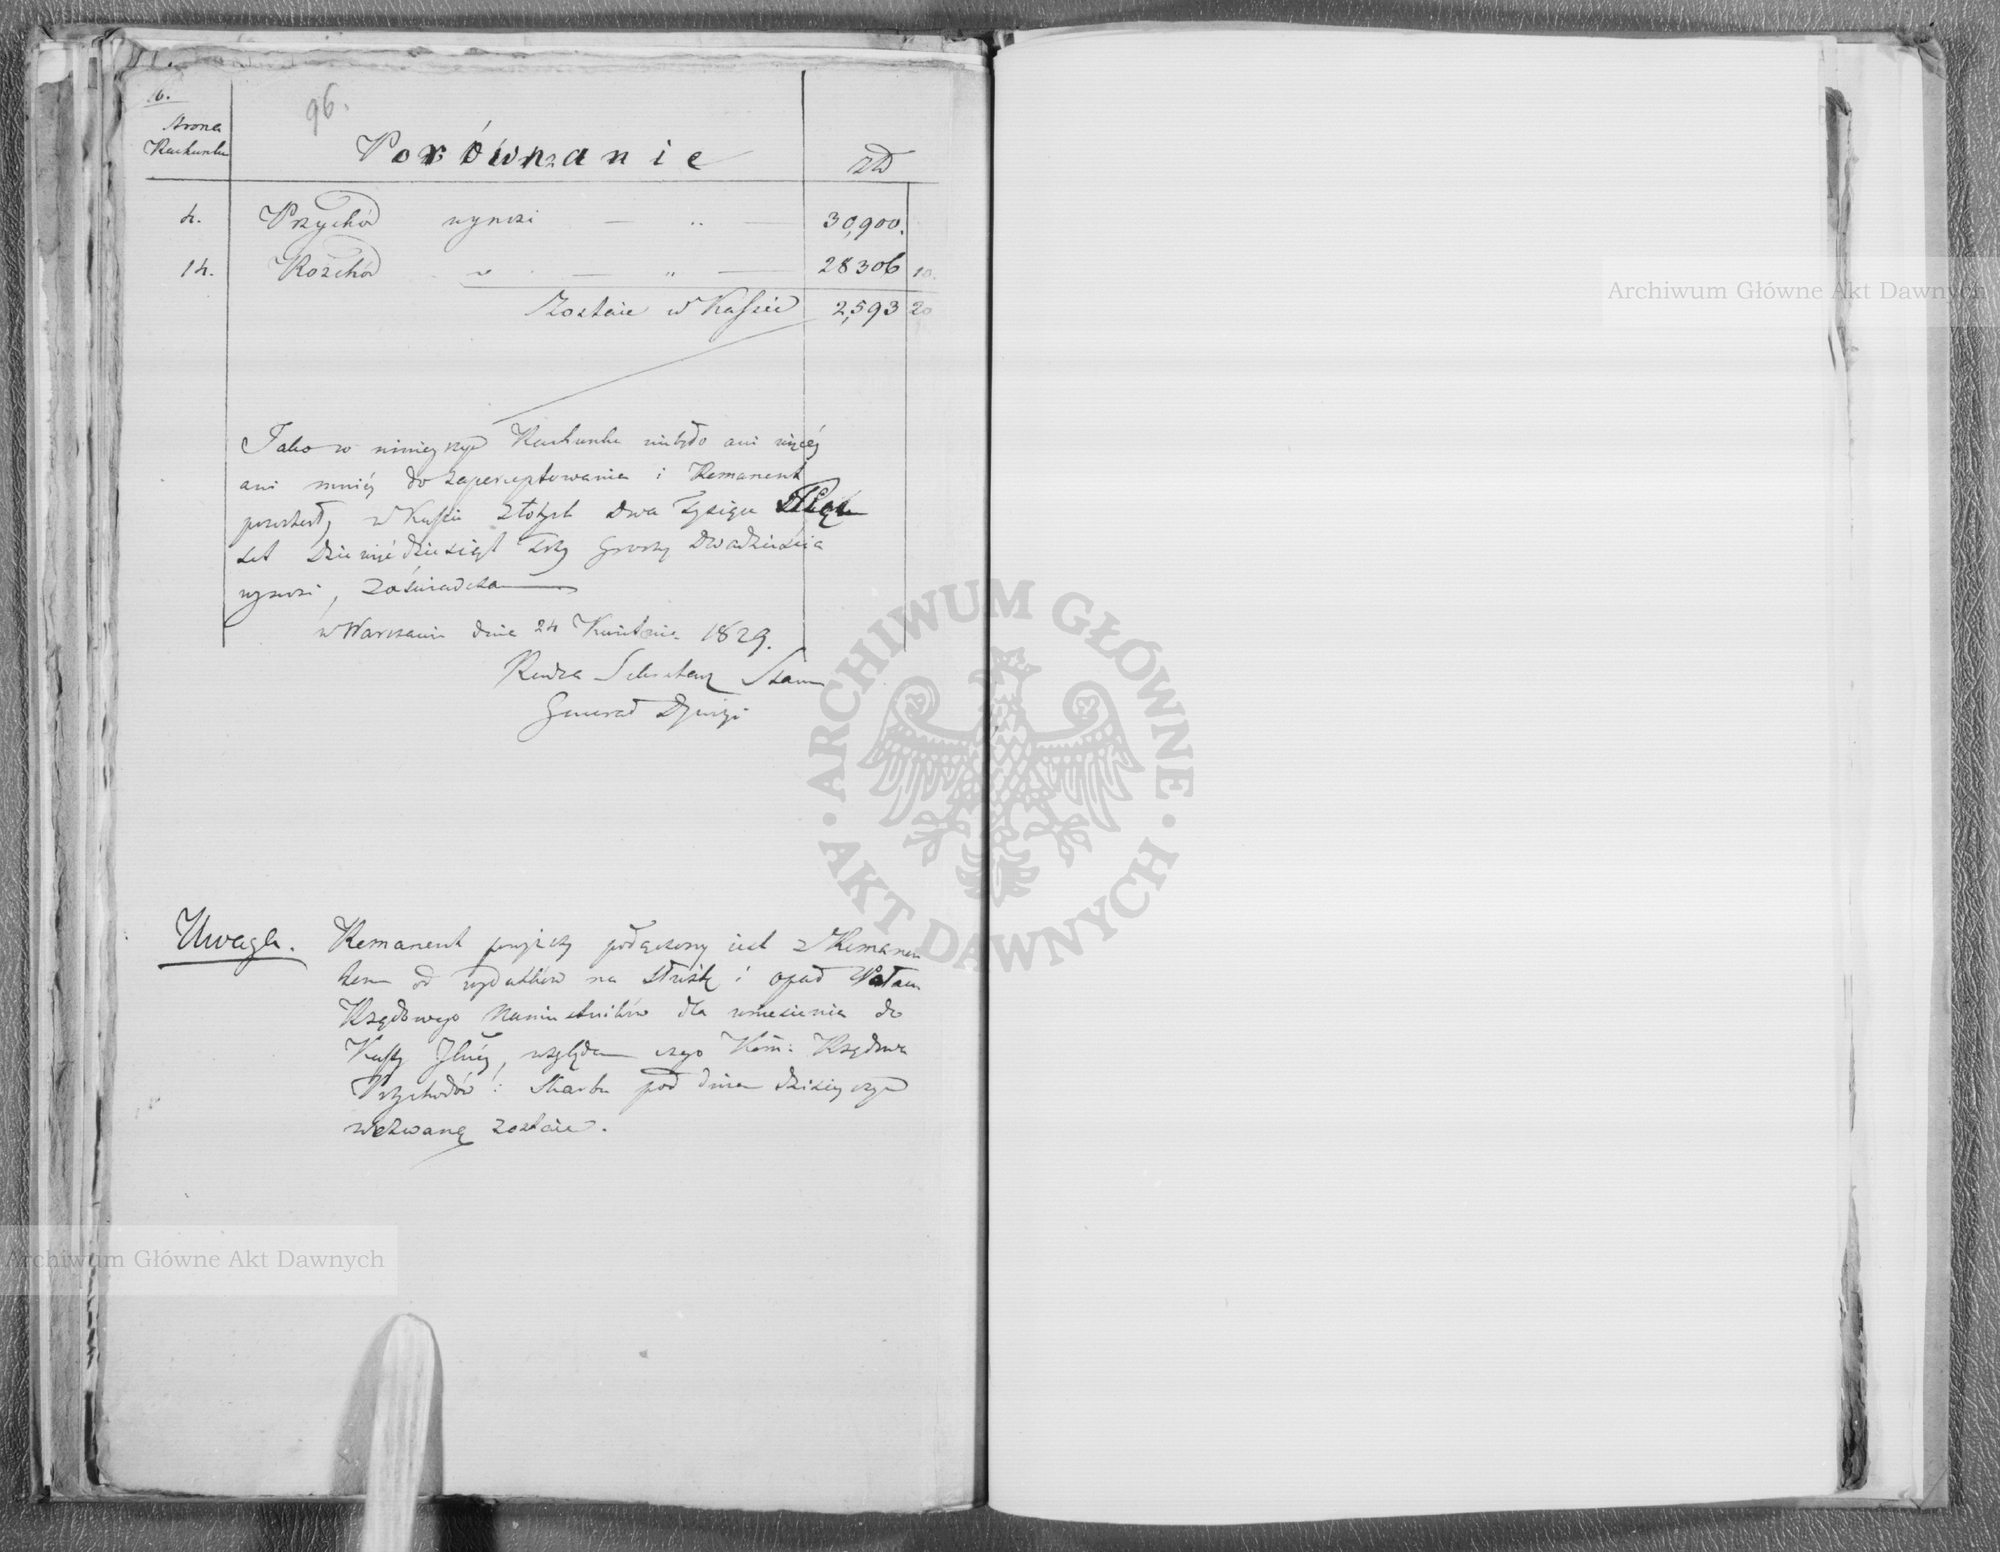 16.
96.
Strona
Rachunku
Porównanie
złł
4. Przychód wynosi — „ — 30,900.
14. Rozchód — „ — 28306 10.
Zostaie w Kassie 2,593 20
Jako w ninieyszym Rachunku niebyło ani więcéy
ani mniéy do zaperceptowania i Remanent
pozostały w Kassie Złotych Dwa Tysiące Pięć
set Dziewięćdziesiąt Trzy Groszy Dwadzieścia
wynosi, zaświadcza
w Warszawie dnia 24 Kwietnia 1829.
Radca Sekretarz Stanu
Generał Dywizyi
Uwaga. Remanent powyższy połączony iest z Remanen
tem od wydatków na stróżę i opał Pałacu
Rządowego Namiestników dla wniesienia do
Kassy Głnéy, względem czego Kom: Rządowa
Przychodów i Skarbu pod dniem dzisieyszym
wezwaną zostaie.
ARCHIWUM GŁÓWNE
AKT DAWNYCH
Archiwum Główne Akt Dawnych
Archiwum Główne Akt Dawnych